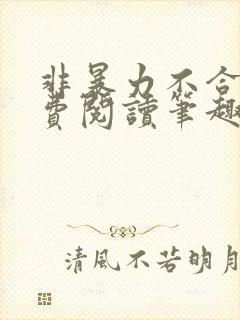 非暴力不合
費閱讀筆趣
清風不若明月